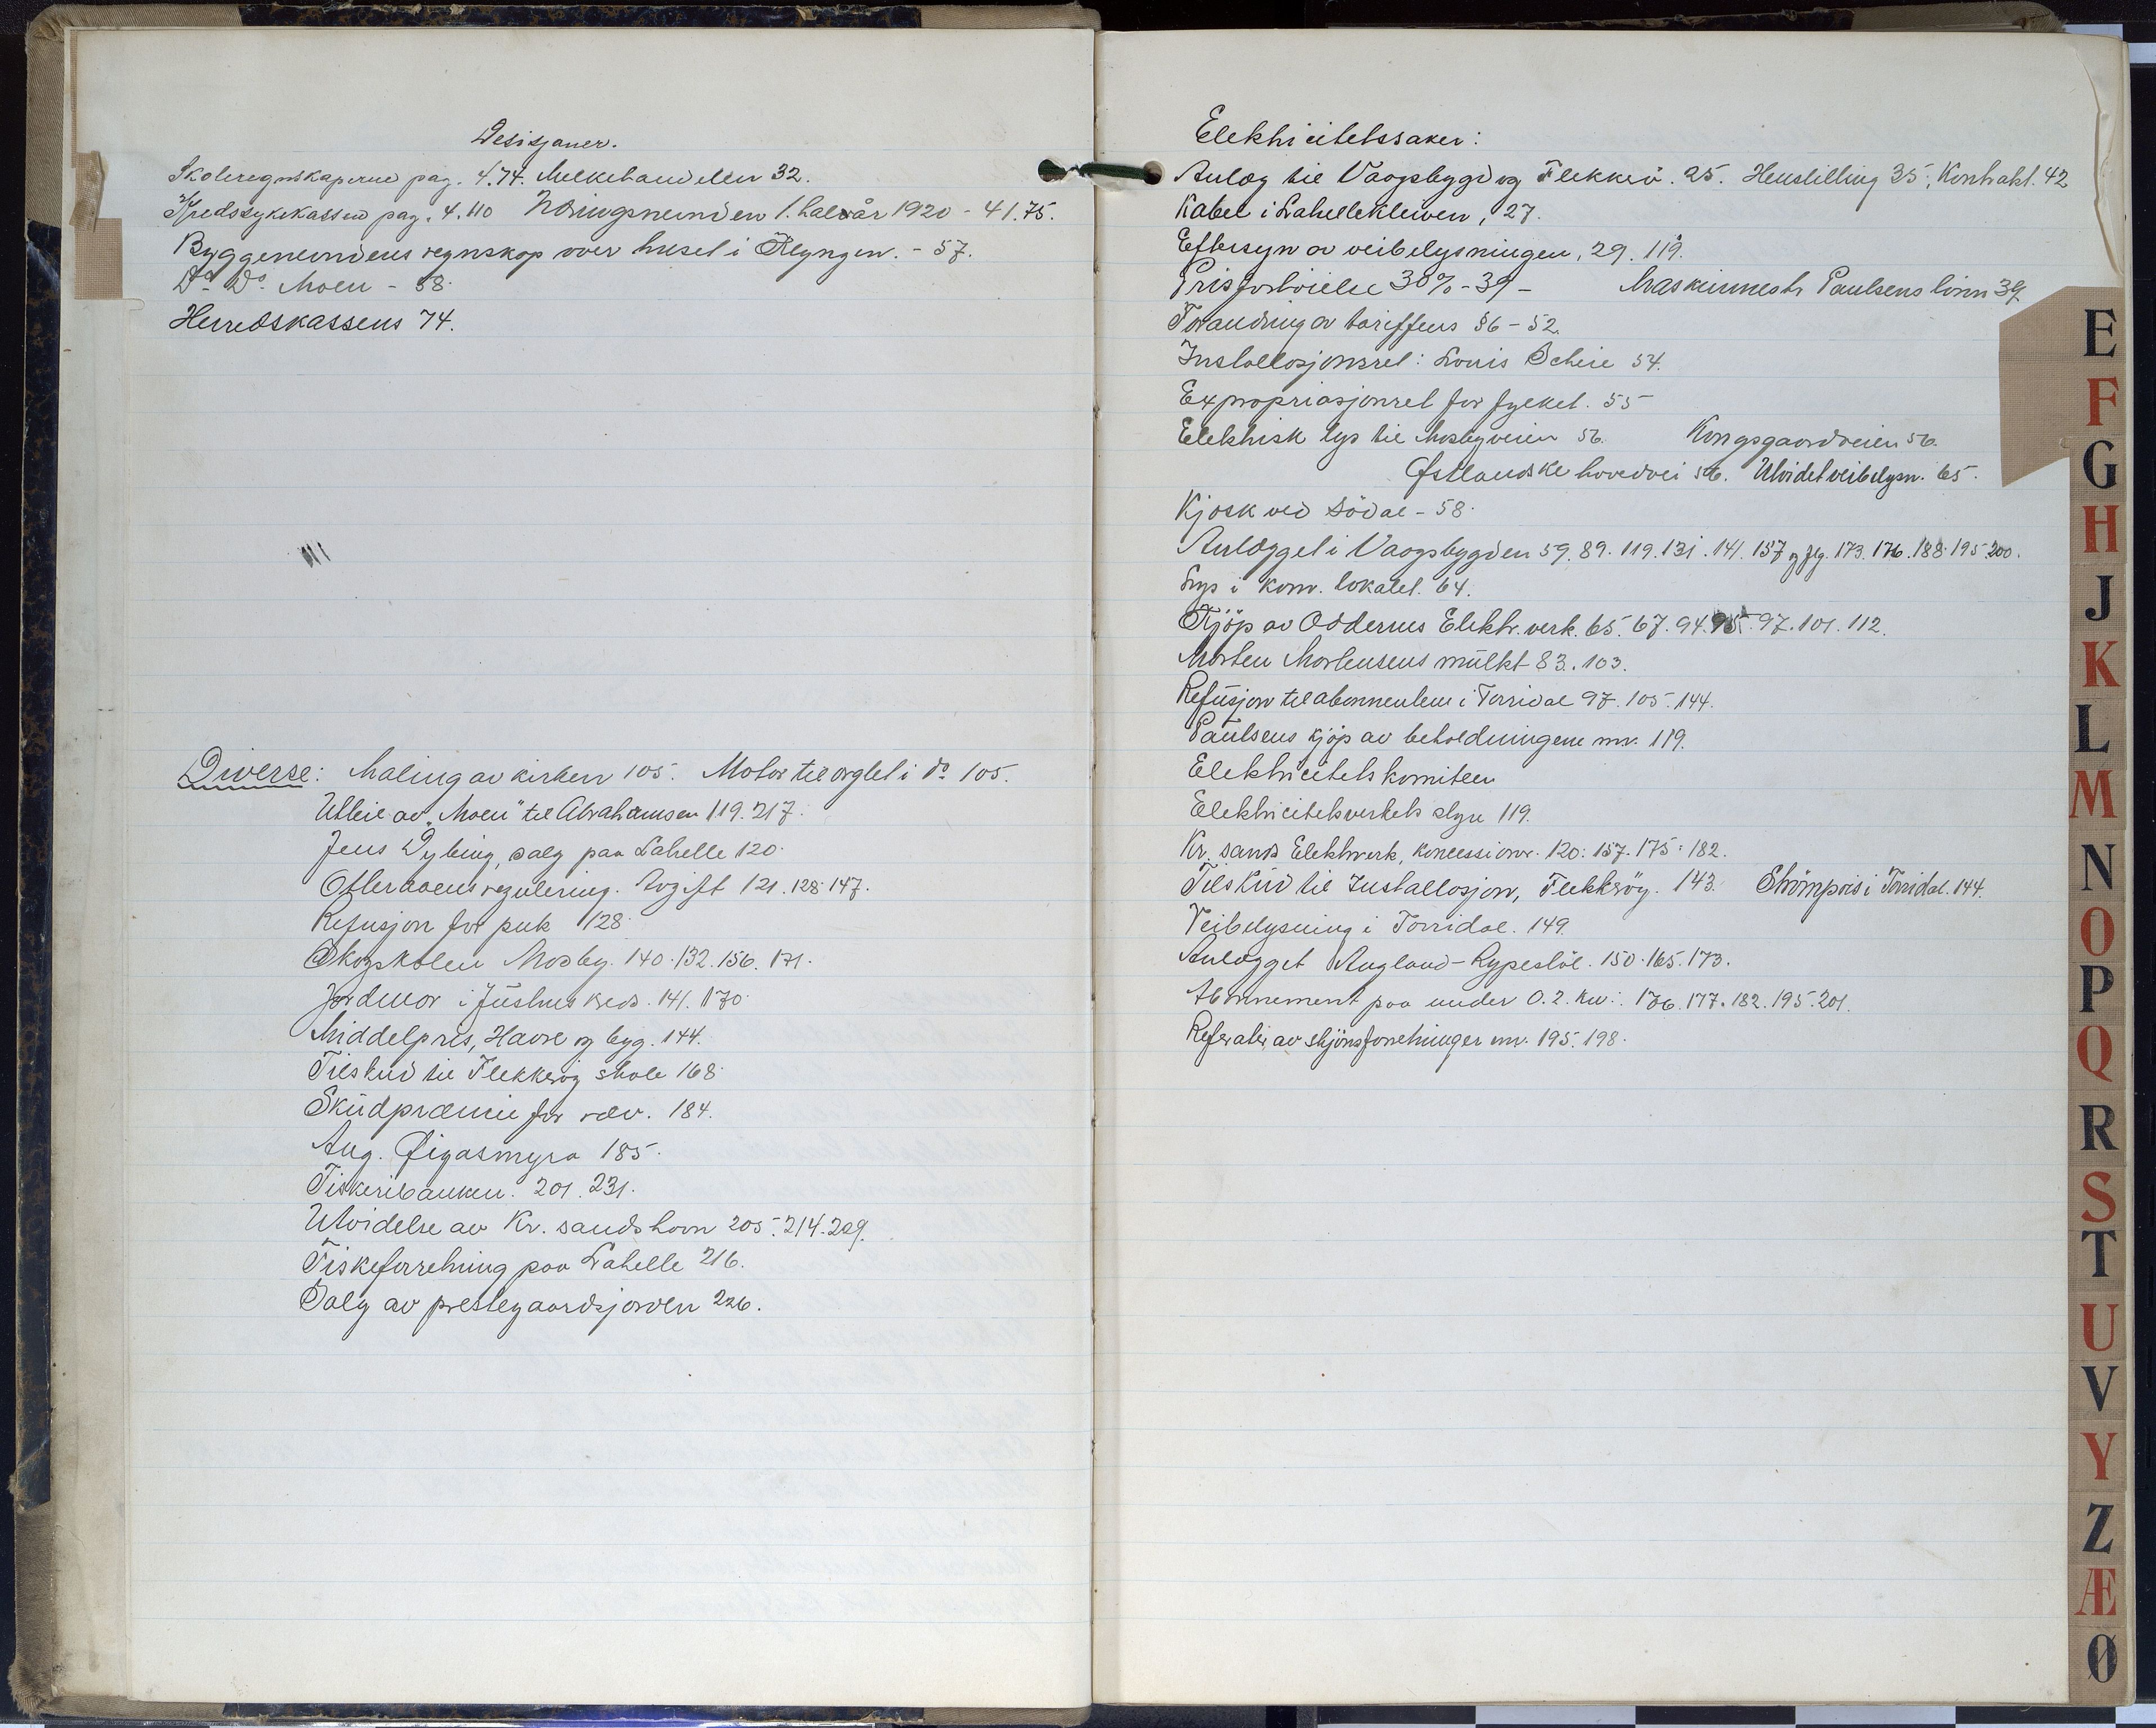 Desisjoner.
Skoleregnskaperne pag. 4.74. Melkehandelen 32.
Kredssykekassen pag. 4.110 Næringsnemnden 1. halvår 1920 - 41.75.
Byggenemndens regnskap over huset i Klyngen. - 57.
Do. Do. Moen - 58.
Herredskassens 74.
Diverse: Maling av kirken 105. Motor til orglet i do 105.
Utleie av "Moen" til Abrahamsen 119. 217.
Jens Dybing, salg paa Lahelle 120.
Otteraaens regulering. Avgift 121. 128. 147.
Refusjon for puk 128.
Skogskolen Mosby. 140. 132. 156. 171.
Jordmor i Justnes kreds. 141. 170.
Middelpris, Havre og byg. 144.
Tilskud til Flekkerøy skole 168.
Skudpræmie for ræv. 184.
Aug. Øigasmyra 185.
Fiskeribanken. 201. 231.
Utvidelse av Kr. sands havn 205. 214. 229.
Fiskeforretning paa Lahelle 216.
Salg av prestegaardsjorden 226.
Elektricitetssaker:
Anlæg til Vaagsbygd og Flekkerø. 25. Henstilling 35, Kontrakt. 42
Kabel i Lahellekleiven, 27.
Eftersyn av veibelysningen, 29. 119.
Prisforhöielse 30% - 39 - Maskinmestr Paulsens lönn 39.
Forandring av tariffens §6 - 52.
Installasjonsret: Louis Scheie 54.
Expropriasjonsret for fylket. 55
Elektrisk lys til Mosbyveien 56. Kongsgaardveien 56.
Østlandske hovedvei 56. Utvidet veibelysn. 65.
Kjosk ved Södal - 58.
Anlægget i Vaagsbygden 59. 89. 119. 131. 141. 157 og flg. 173. 176. 188. 195. 200.
Lys i kom. lokalet. 64.
Kjöp av Oddernes Elektr. verk. 65. 67. 94. 95. 97. 101. 112.
Morten Mortensens mulkt 83. 103.
Refusjon til abonnentene i Torridal 97. 105. 144.
Paulsens kjöp av beholdningene mv. 119.
Elektricitetskomiteen
Elektricitetsverkets styre 119.
Kr. sands Elektr.verk, koncessionr. 120. 157. 175. 182.
Tilskud til Installasjon, Flekkeröy. 143. Strömpris i Torridal. 144.
Veibelysning i Torridal. 149.
Anlægget Augland - Rypestöl. 150. 165. 173.
Abonnement paa under 0.2. kw. 176. 177. 182. 195. 201.
Referater av skjönsforretninger mv. 195. 198.
E
F
G
H
J
K
L
M
N
O
P
Q
R
S
T
U
V
Y
Z
Æ
Ø